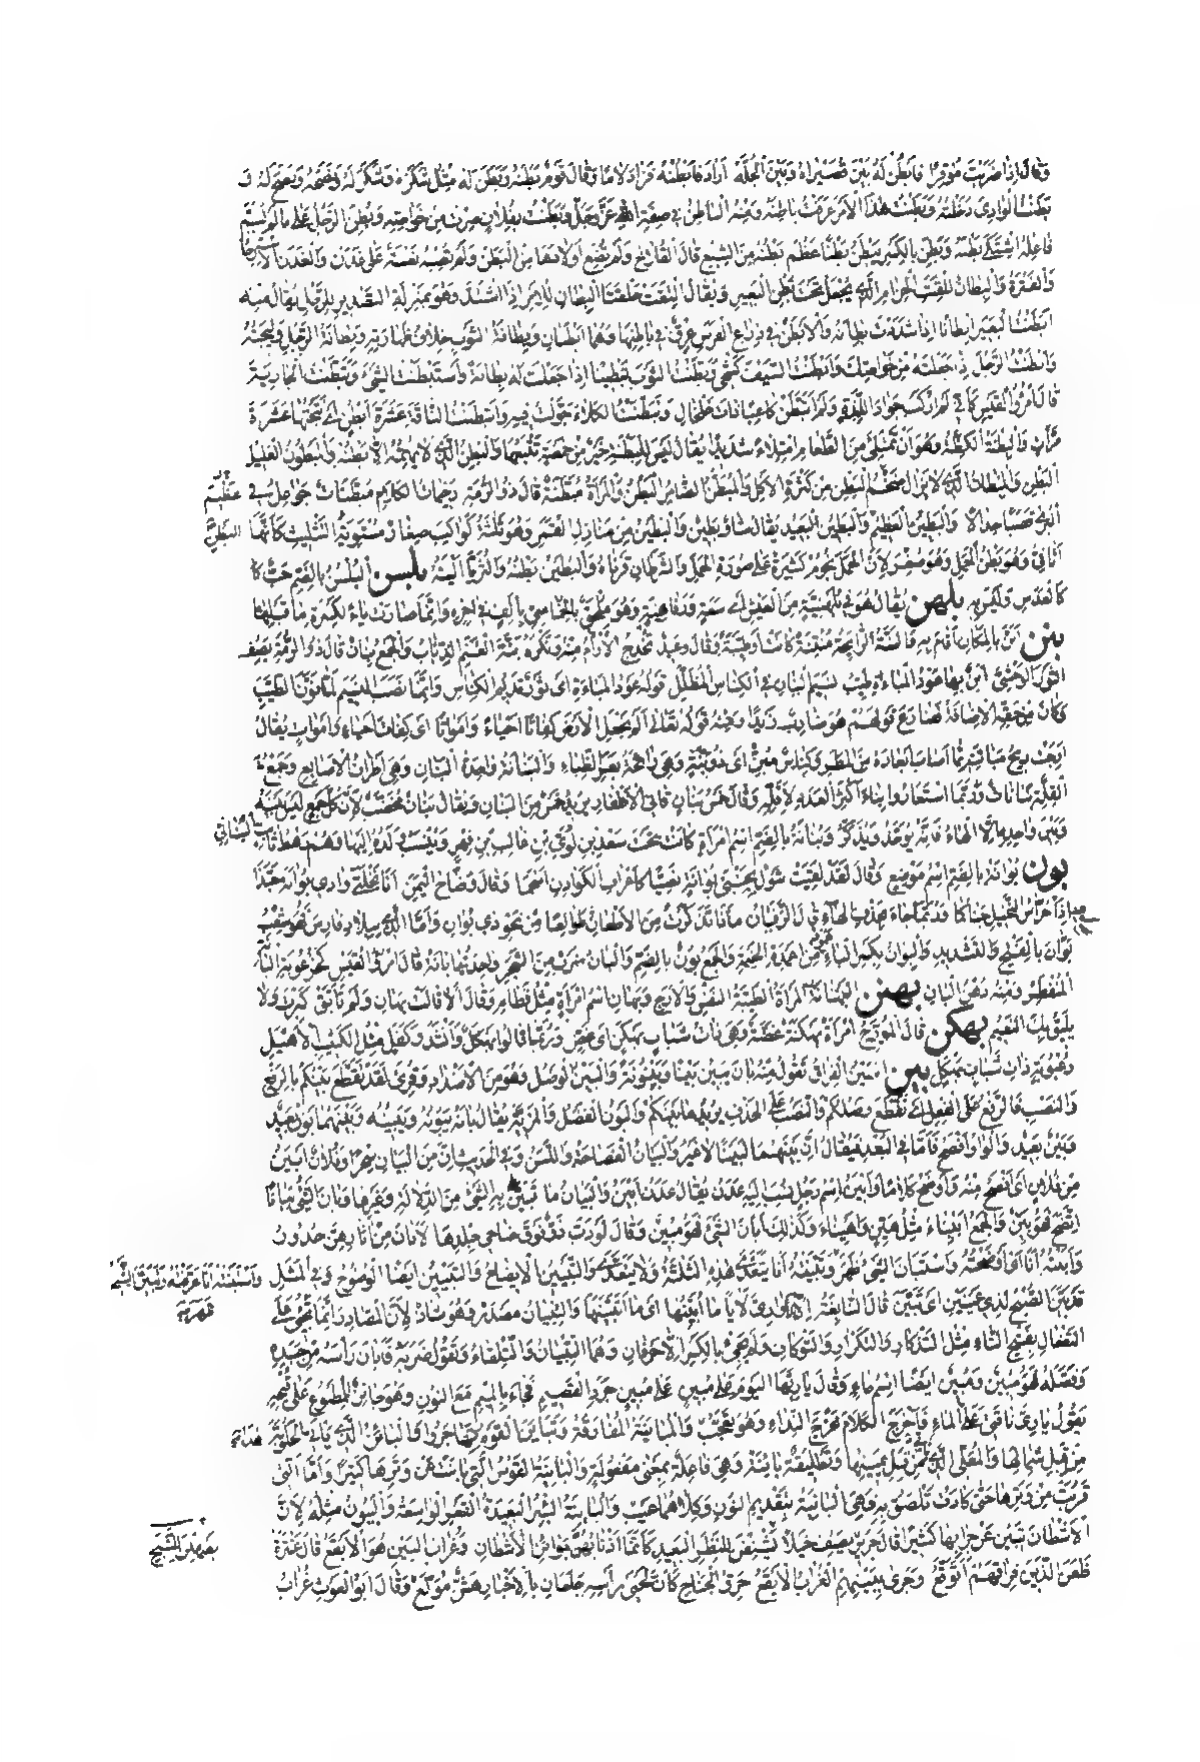 وقال إذا ضربت موقرا فابطن له بين قصيراه وبين الجله أراد فابطنه فزاد لاما وقال قوم بطنه وبطن له مثل شكره وشكر له ونصحه ونصح له و
بطنت الوادي دخلته وبطنت هذا الأمر عرفت باطنه ومنه الباطن في صفة الله عز وجل وبطنت بفلان صرت من خواصه وبطن الرجل على ما لم يسم
فاعله اشتكى بطنه وبطن بالكسر يبطن بطنا عظم بطنه من الشبع قال القلاخ ولم تضع أولادها من البطن ولم تصبه نعسة على غدن والغدن الاسترخاء
والفترة والبطان للقتب الحزام الذي يجعل تحت بطن البعير ويقال التقت حلقتا البطان للأمر إذا اشتد وهو بمنزلة التصدير للرحل يقال منه
أبطنت البعير إبطانا إذا شددت بطانه والأبطن في ذراع الفرس عرق في باطنها وهما أبطنان وبطانة الثوب خلاف ظهارته وبطانة الرجل وليجته
وأبطنت الرجل إذا جعلته من خواصك وأبطنت السيف كشحي وبطنت الثوب تبطينا إذا جعلت له بطانة واستبطنت الشيء وتبطنت الجارية
قال امرؤ القيس كأني لم أركب جوادا للذة ولم أتبطن كاعبا ذات خلخال وتبطنت الكلأ جولت فيه وابتطنت الناقة عشرة أبطن أي نتجتها عشرة
مرات والبطنة الكظة وهو أن تمتلئ من الطعام امتلاء شديدا يقال ليس للبطنة خير من خمصة تتبعها والبطن الذي لا يهمه إلا بطنه والمبطون العليل
البطن والمبطان الذي لا يزال ضخم البطن من كثرة الأكل والمبطن الضامر البطن والمرأة مبطنة قال ذو الرمة رخيمات الكلام مبطنات جواعل في
عظيم البطن
البرى قصبا خدالا والبطين العظيم والبطين البعيد يقال شأو بطين والبطين من منازل القمر وهو ثلثة كواكب صغار مستوية التثليث كأنها
أثافي وهو بطن الحمل وهو صغر لأن الحمل نجوم كثيرة على صورة الحمل والشرطان قرناه والبطين بطنه والثريا أليته بلسن البلسن بالضم حب كا
كالعدس وليس به بلهن يقال هو في بلهنية من العيش أي سعة ورفاهية وهو ملحق بالخماسي بألف في آخره وإنما صارت ياء لكسرة ما قبلها
بنن أبن بالمكان أقام به والبنة الرائحة منتنة كانت أو طيبة وقال وعيد تخدج الأرآم منه وتكره بنة الغنم الذئاب والجمع بنان قال ذو الرمة يصف
الثور الوحشي أبن بها عود المباءة طيب نسيم البنان في الكناس المظلل قوله عود المباءة أي ثور قديم الكناس وإنما نصب النسيم لما نون الطيب
وكان من حقه الإضافة فضارع قولهم هو ضارب زيدا ومنه قوله تعالى ألم نجعل الأرض كفاتا أحياء وأمواتا أي كفات أحياء وأموات يقول
أرجت ريح مباءته مما أصاب أبعاره من المطر وكناس مبن أي ذو بنة وهي رائحة بعر الظباء والبنانة واحدة البنان وهي أطراف الأصابع وجمع
القلة بنانات وربما استعاروا بناء أكثر العدد لأقله وقال خمس بنان قانئ الأظفار يريد خمسا من البنان ويقال بنان مخضب لأن كل جمع ليس بينه
وبين واحده إلا الهاء فإنه يوحد ويذكر وبنانة بالضم اسم امرأة كانت تحت سعد بن لؤي بن غالب بن فهر وينسب ولده إليها وهم رهط ثابت البناني
بون بوانة بالضم اسم موضع وقال لقد لقيت شول بجنبي بوانة نصيا كأعراف الكوادن أسحما وقال وضاح اليمن أيا نخلتي وادي بوانة حبذا
إذا حراس النخيل جناكما وربما جاء بحذف الهاء قال الزفيان ماذا تذكرت من الأظعان طوالعا من نحو ذي بوان وأما الذي ببلاد فارس فهو شعب
بوان بالفتح والتشديد والبوان بكسر الباء عمود من أعمدة الخباء والجمع بون بالضم والبان ضرب من الشجر واحدتها بانة قال امرؤ القيس كخرعوبة البانة
المنفطر ومنه دهن البان بهنن البهنانة المرأة الطيبة النفس والأرج وبهان اسم امرأة مثل قطام وقال ألا قالت بهان ولم تأبق كبرت ولا
يليق بك النعيم بهكن قال المؤرج امرأة بهكنة غضة وهي ذات شباب بهكن أي غض وربما قالوا بهكل وأنشد وكفل مثل الكثيب الأهيل
رعبوبة ذات شباب بهكل بين البين الفراق تقول منه بان يبين بينا وبينونة والبين الوصل وهو من الأضداد وقرئ لقد تقطع بينكم بالرفع
والنصب فالرفع على الفعل أي تقطع وصلكم والنصب على الحذف يريد ما بينكم والبون الفضل والمزية يقال بانه يبونه ويبينه وبينهما بون بعيد
وبين بعيد والواو أفصح فأما في البعد فيقال إن بينهما لبينا لا غير والبيان الفصاحة واللسن وفي الحديث إن من البيان لسحرا وفلان أبين
من فلان أي أفصح منه وأوضح كلاما وأبين اسم رجل نسب إليه عدن يقال عدن أبين والبيان ما تبين به الشيء من الدلالة وغيرها وبان الشيء بيانا
اتضح فهو بين والجمع أبيناء مثل هين وأهيناء وكذلك أبان الشيء فهو مبين وقال لو دب ذر فوق ضاحي جلدها لأبان من آثارهن حدور
وأبنته أنا أي أوضحته واستبان الشيء ظهر واستبنته أنا عرفته وتبين الشيء ظهر وتبينته أنا يتعدى هذه الثلثة ولا يتعدى والتبيين الإيضاح والتبيين أيضا الوضوح وفي المثل
قد بين الصبح لذي عينين أي تبين قال النابغة إلا أواري لأيا ما أبينها أي ما أتبينها والتبيان مصدر وهو شاذ لأن المصادر إنما تجيء على
التفعال بفتح التاء مثل التذكار والتكرار والتوكاف ولم يجئ بالكسر إلا حرفان وهما التبيان والتلقاء وتقول ضربه فأبان رأسه من جسده
وفصله فهو مبين ومبين أيضا اسم ماء وقال يا ريها اليوم على مبين على مبين جرد القصيم فجاء بالميم مع النون وهو جائز للمطبوع على قبحه
يقول يا ري ناقتي على هذا الماء فأخرج الكلام مخرج النداء وهو تعجب والمباينة المفارقة وتباين القوم تهاجروا والبائن الذي يأتي الحلوبة
من قبل شمالها والمعلى الذي يأتي من قبل يمينها وتطليقة بائنة وهي فاعلة بمعنى مفعولة والبائنة القوس التي بانت عن وترها كثيرا وأما التي
قربت من وترها حتى كادت تلصق به فهي البانية بتقديم النون وكلاهما عيب والبائنة البئر البعيدة القعر الواسعة والبيون مثله لأن
الأشطان تبين عن جرابها كثيرا قال جرير يصف خيلا يشنفن للنظر البعيد كأنما إرنانها ببوائن الأشطان وغراب البين هو الأبقع قال عنترة
ظعن الذين فراقهم أتوقع وجرى ببينهم الغراب الأبقع حرق الجناح كأن لحيي رأسه جلمان بالأخبار هش مولع وقال أبو الغوث غراب